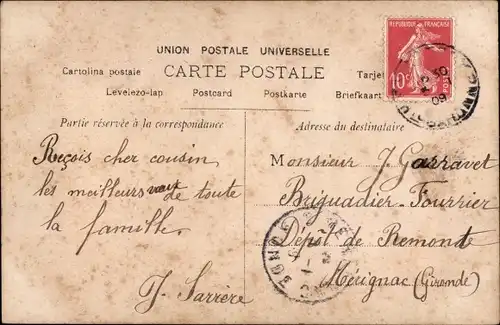 UNION POSTALE UNIVERSELLE
Cartolina postale CARTE POSTALE
Levelezo-lap Postcard Postkarte Briefkaart
REPUBLIQUE FRANÇAISE
10c
POSTES
09
Partie réservée à la correspondance
Reçois cher cousin
les meilleurs vœux de toute
la famille
J. Sarrère
Adresse du destinataire
Monsieur J. Garravet
Briguadier-Fourrier
Dépôt de Remonte
Mérignac (Gironde)